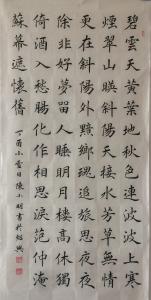 碧雲天黃葉地秋色連波波上寒
煙翠山映斜陽天接水芳草無情
更在斜陽外黯鄉魂追旅思夜夜
除非好夢留人睡明月樓高休獨
倚酒入愁腸化作相思淚范仲淹
蘇幕遮懷舊
丁酉小雪日陳小明書於紹興